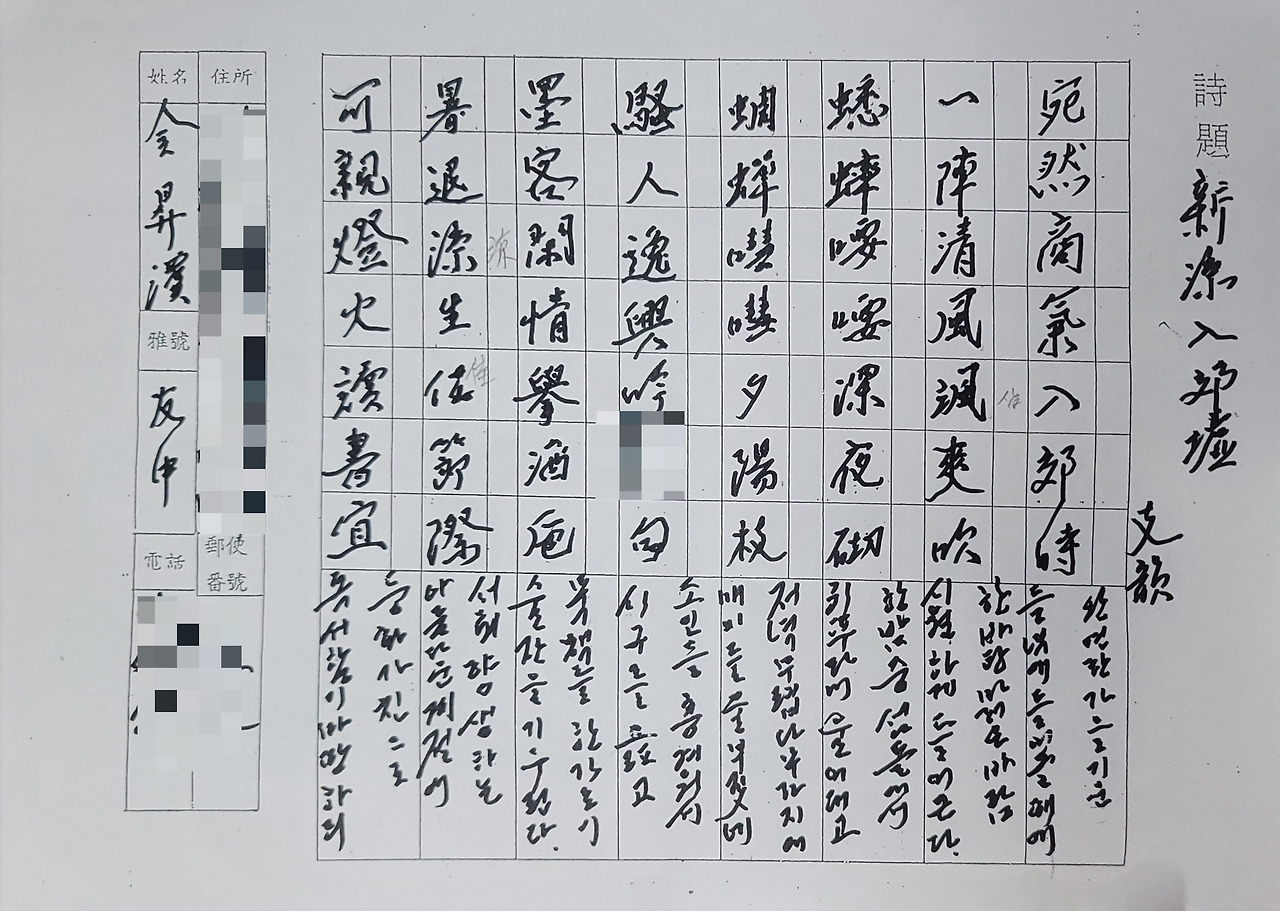 詩題 新凉入郊墟
支韻
宛然商氣入郊時
완연한 가을기운
들녘에 들어올 때에
一陣清風颯爽吹
作
한바탕 맑은 바람
시원하게 불어온다.
蟋蟀嘐嘐深夜砌
한밤중 섬돌에서
蜩蟬嘒嘒夕陽枝
저녁무렵 나무가지에
매미들 울부짖네
騷人逸興吟 句
소인들 흥겨워서
시구를 읊고
墨客閑情擧酒巵
묵객들 한가로이
술잔을 기우린다.
暑退凉生佳節際
凉
佳
서퇴량생하는
아름다운 계절에
可親燈火讀書宜
등화가친으로
독서함이 마땅하리
住所
郵便番號
姓名 金昇漢
雅號 友中
電話